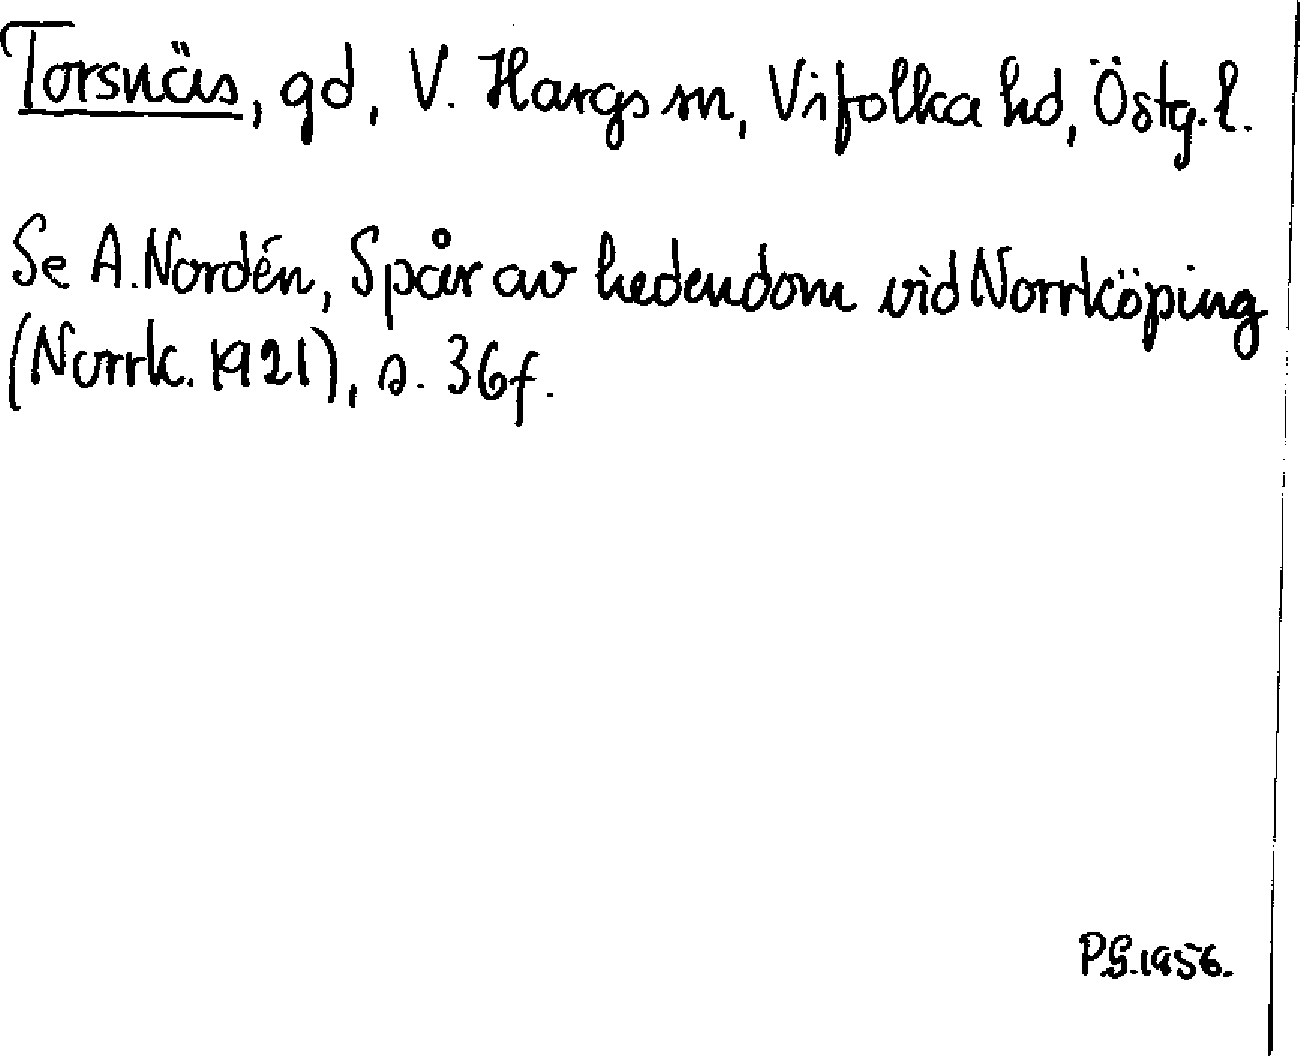 Torsnäs, gd, V. Hargs sn, Vifolka hd, Östg.l.
Se A. Nordén, Spår av hedendom vid Norrköping
(Norrk. 1921), s. 36f.
P.G. 1956.